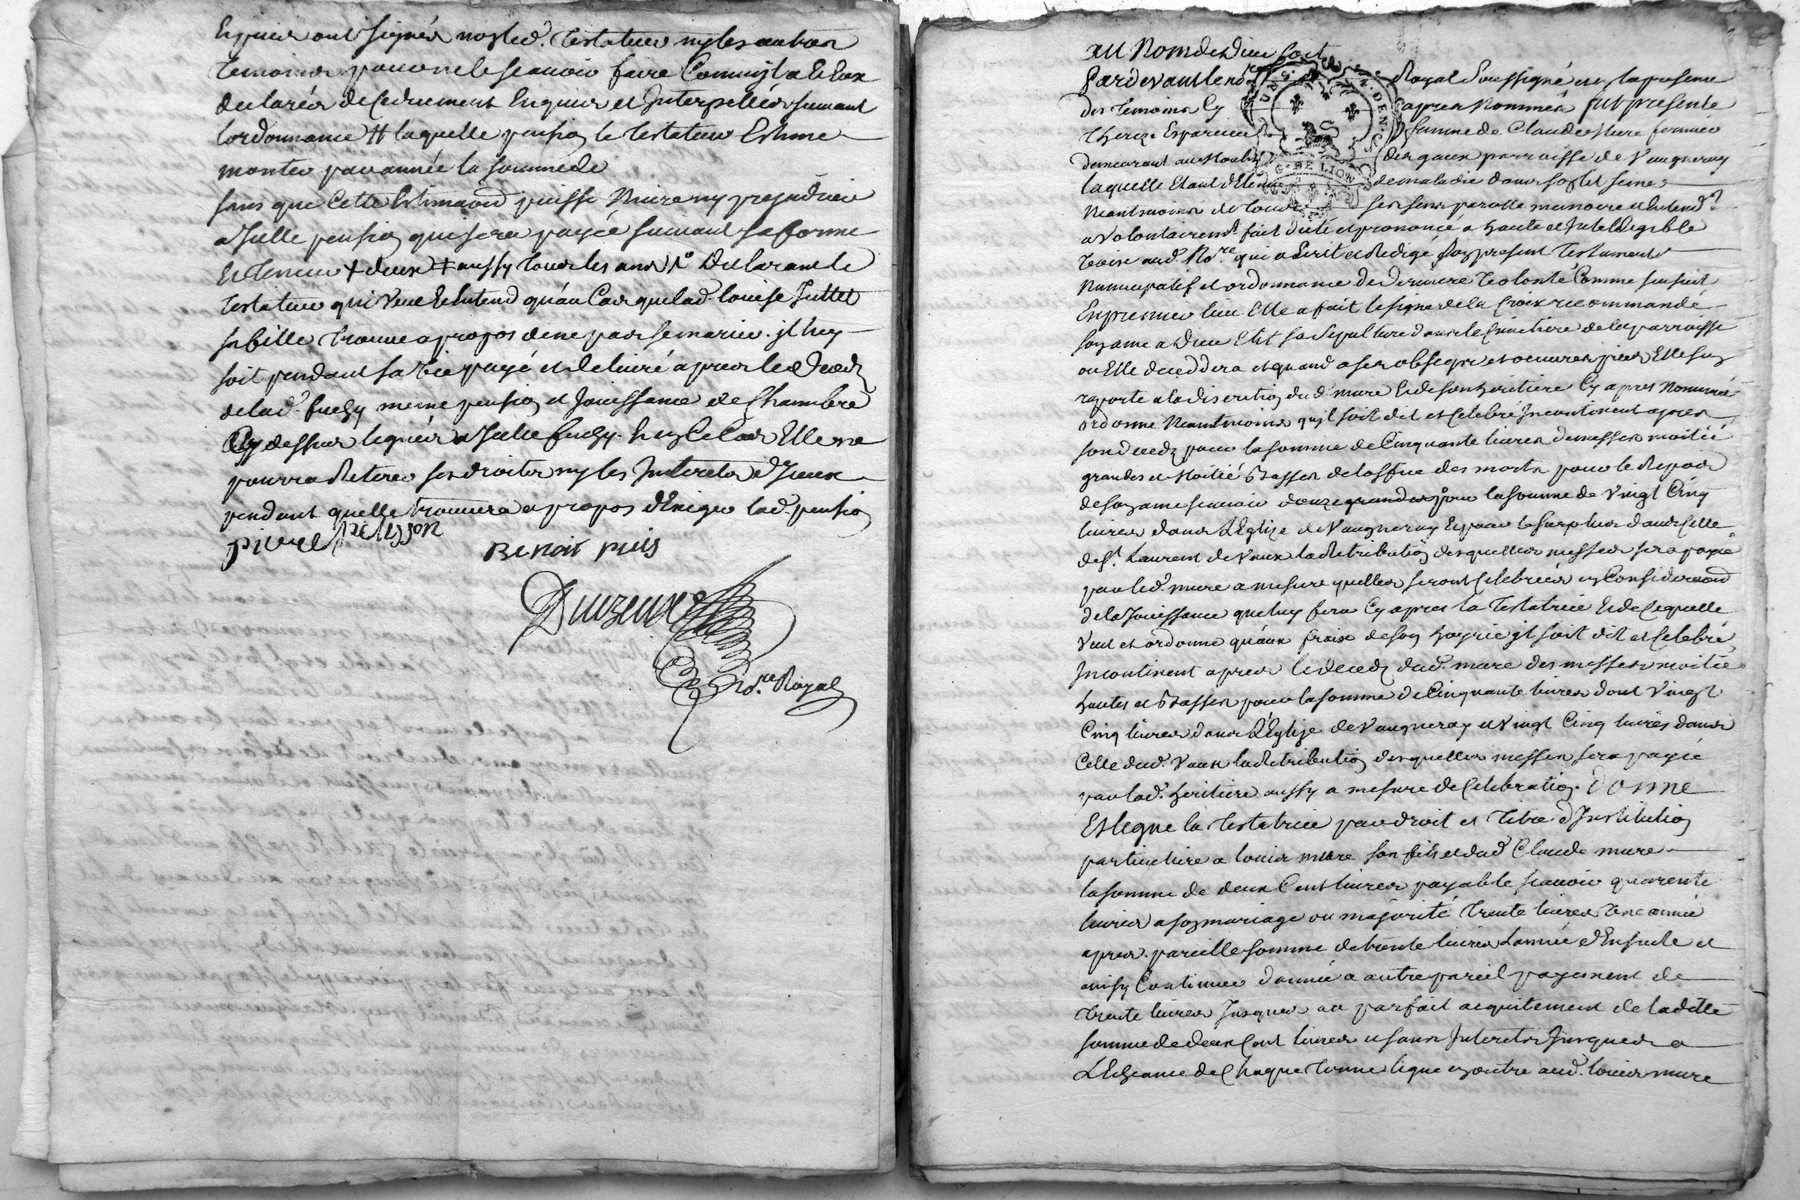 Requis ont signés non led. Testateur ny les autres
Temoins pour ne le scavoir faire Comme il a et eux
declarés de ce duement Enquis et Interpellés suivant
lordonnance # laquelle pension le Testateur Estime
monter par année la somme de
sans que Cette Estimaõn puisse Nuire ny prejudicier
a Jcelle pension que sera payée suivant sa forme
Et Teneur + deux + aussy Tous les ans Declarant le
Testateur qui Veut et Entend qu'au Cas que lad. louise
sa fille Trouve a propos de ne pas se marier. jl luy
soit pendant sa Vie payé et delivré apres le deceds
de lad. meme pension et Jouissance de Chambre
Cy dessus legués a Jcelle En Ce Cas Elle ne
pourra Retirer ses droits ny les Interets d'Jceux
pendant quelle trouvera a propos d'Exiger lad. pension
pierre pelisson
Benoit
No.re Royal
AU Nom de Dieu soit
Pardevant le no.re Royal Soussigné et en la presence
des Temoins Cy apres Nommés fut presente
Thereze femme de Claude Mure fermier
demeurant au des parroisse de Vaugneray
laquelle Etant detenue de maladie dans son lit
Neantmoins de tous ses sens parolle memoire et Entend.t
a Volontairem.t fait dicté et prononcé a haute et Intelligible
Voix aud. No.re qui a Ecrit et Redigé son present Testament
Nuncupatif et ordonnance de derniere Volonté Comme sensuit
En premier lieu Elle a fait le signe de la Croix recommandé
son ame a Dieu Elit sa Sepulture dans le Cimetiere de la parroisse
ou Elle decedera et quand a ses obseques et oeuvres pies Elle s'en
raporte a la discretion dud. mure et de son heritiere Cy apres Nommée
ordonne Neantmoins qu'il soit dit et Celebré Incontinent apres
son deceds pour la somme de Cinquante livres de messes moitié
grandes et Moitié Basses de l'office des morts pour le Repos
de son ame scavoir pour la somme de Vingt Cinq
livres dans L'Eglize de Vaugneray Et pour le surplus dans celle
de St. Laurent de Vaux la Retribution desquelles messes sera payé
par led. mure a mesure quelles seront Celebrées en Consideraõn
de la Jouissance que luy fera Cy apres la Testatrice
Veut et ordonne qu'aux fraix de son hoyrie jl soit dit et Celebré
Incontinent apres le deceds dud. mure des messes moitié
hautes et Basses pour la somme de Cinquante livres dont Vingt
Cinq livres dans L'Eglize de Vaugneray et Vingt Cinq livres dans
Celle dud. Vaux la Retribution desquelles messes sera payée
par lad. heritiere aussy a mesure de Celebration. DONNE
Et legue la Testatrice par droit et Titre d'Institution
particuliere a louis mure son fils et dud. Claude mure
la somme de deux Cent livres payable scavoir quarente
livres a son mariage ou majorité Trente livres Une année
apres pareille somme de trente livres l'année d'Ensuite et
ainsy Continuer d'année a autre pareil payement de
Trente livres Jusques au parfait acquitement de ladite
somme de deux Cent livres et sans Interets Jusques a
L'Echeance de Chaque Terme legue en outre aud. louis mure